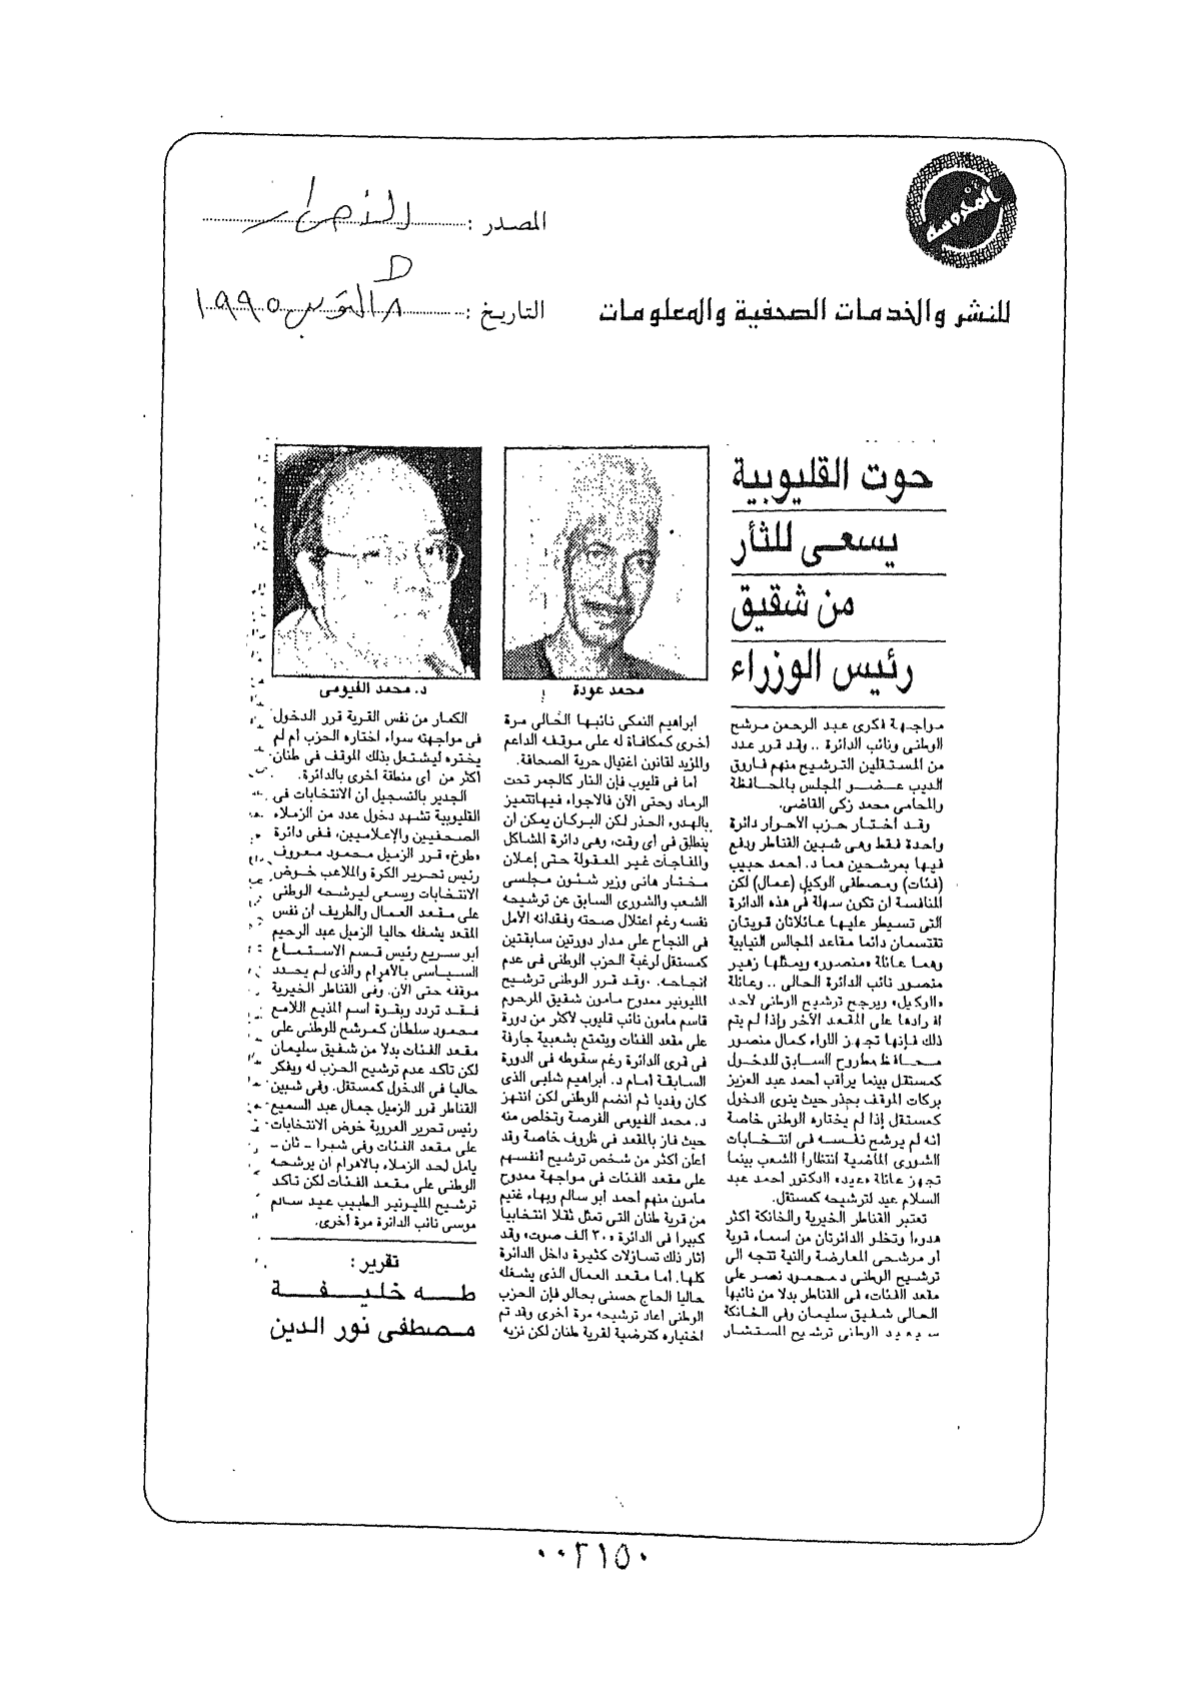 المدوسة
المصدر : الأحرار
للنشر والخدمات الصحفية والمعلومات
التاريخ : ٨ أكتوبر ١٩٩٥
حوت القليوبية
يسعى للثأر
من شقيق
رئيس الوزراء
محمد عودة
د. محمد الفيومى
مواجهة فكرى عبد الرحمن مرشح
الوطنى ونائب الدائرة .. وقد قرر عدد
من المستقلين الترشيح منهم فاروق
الديب عضو المجلس بالمحافظة
والمحامى محمد زكى القاضى.
وقد اختار حزب الأحرار دائرة
واحدة فقط وهى شبين القناطر ودفع
فيها بمرشحين هما د. أحمد حبيب
(فئات) ومصطفى الوكيل (عمال) لكن
المنافسة لن تكون سهلة فى هذه الدائرة
التى تسيطر عليها عائلاتان قويتان
تقتسمان دائما مقاعد المجالس النيابية
وهما عائلة «منصور» ويمثلها زهير
منصور نائب الدائرة الحالى .. وعائلة
«الوكيل» ويرجح ترشيح الوطنى لأحد
افرادها على المقعد الآخر وإذا لم يتم
ذلك فإنها تجهز اللواء كمال منصور
محافظ مطروح السابق للدخول
كمستقل بينما يراقب أحمد عبد العزيز
بركات الموقف بحذر حيث ينوى الدخول
كمستقل إذا لم يختاره الوطنى خاصة
انه لم يرشح نفسه فى انتخابات
الشورى الماضية انتظارا للشعب بينما
تجهز عائلة «عيد» الدكتور أحمد عبد
السلام عيد لترشيحه كمستقل.
تعتبر القناطر الخيرية والخانكة أكثر
هدوءا وتخلو الدائرتان من أسماء قوية
أو مرشحى المعارضة والنية تتجه الى
ترشيح الوطنى د.محمود نصر على
مقعد الفئات» فى القناطر بدلا من نائبها
الحالى شفيق سليمان وفى الخانكة
سيعيد الوطنى ترشيح المستشار
ابراهيم النمكى نائبها الحالى مرة
أخرى كمكافأة له على موقفه الداعم
والمزيد لقانون اغتيال حرية الصحافة.
أما فى قليوب فإن النار كالجمر تحت
الرماد وحتى الآن فالأجواء فيها تتميز
بالهدوء الحذر لكن البركان يمكن ان
ينطلق فى أى وقت، وهى دائرة المشاكل
والمفاجآت غير المعقولة حتى إعلان
مختار هانى وزير شئون مجلسى
الشعب والشورى السابق عن ترشيحه
نفسه رغم اعتلال صحته وفقدانه الأمل
فى النجاح على مدار دورتين سابقتين
كمستقل لرغبة الحزب الوطنى فى عدم
انجاحه. وقد قرر الوطنى ترشيح
المليونير ممدوح مامون شقيق المرحوم
قاسم مامون نائب قليوب لأكثر من دورة
على مقعد الفئات ويتمتع بشعبية جارفة
فى قرى الدائرة رغم سقوطه فى الدورة
السابقة أمام د. ابراهيم شلبى الذى
كان وفديا ثم انضم للوطنى لكن انتهز
د. محمد الفيومى الفرصة وتخلص منه
حيث فاز بالمقعد فى ظروف خاصة وقد
أعلن أكثر من شخص ترشيح أنفسهم
على مقعد الفئات فى مواجهة ممدوح
مامون منهم أحمد أبو سالم وبهاء غنيم
من قرية طنان التى تمثل ثقلا انتخابيا
كبيرا فى الدائرة «٣٠ ألف صوت» وقد
أثار ذلك تساؤلات كثيرة داخل الدائرة
كلها. أما مقعد العمال الذى يشغله
حاليا الحاج حسنى بحالو فإن الحزب
الوطنى أعاد ترشيحه مرة أخرى وقد تم
اختياره كترضية لقرية طنان لكن نزيه
الكمار من نفس القرية قرر الدخول
فى مواجهته سواء اختاره الحزب أم لم
يختره ليشتعل بذلك الموقف فى طنان
أكثر من أى منطقة أخرى بالدائرة.
الجدير بالتسجيل أن الانتخابات فى
القليوبية تشهد دخول عدد من الزملاء
الصحفيين والإعلاميين، ففى دائرة
«طوخ» قرر الزميل محمود معروف
رئيس تحرير الكرة والملاعب خوض
الانتخابات ويسعى ليرشحه الوطنى
على مقعد العمال والطريف أن نفس
المقعد يشغله حاليا الزميل عبد الرحيم
أبو سريع رئيس قسم الاستماع
السياسى بالأهرام والذى لم يحدد
موقفه حتى الآن. وفى القناطر الخيرية
فقد تردد وبقوة اسم المذيع اللامع
محمود سلطان كمرشح للوطنى على
مقعد الفئات بدلا من شفيق سليمان
لكن تاكد عدم ترشيح الحزب له ويفكر
حاليا فى الدخول كمستقل. وفى شبين
القناطر قرر الزميل جمال عبد السميع
رئيس تحرير العروبة خوض الانتخابات
على مقعد الفئات وفى شبرا - ثان -
يأمل أحد الزملاء بالاهرام ان يرشحه
الوطنى على مقعد الفئات لكن تاكد
ترشيح المليونير الطبيب عيد سالم
موسى نائب الدائرة مرة أخرى.
تقرير :
طه خليفة
مصطفى نور الدين
٠٠٢١٥٠